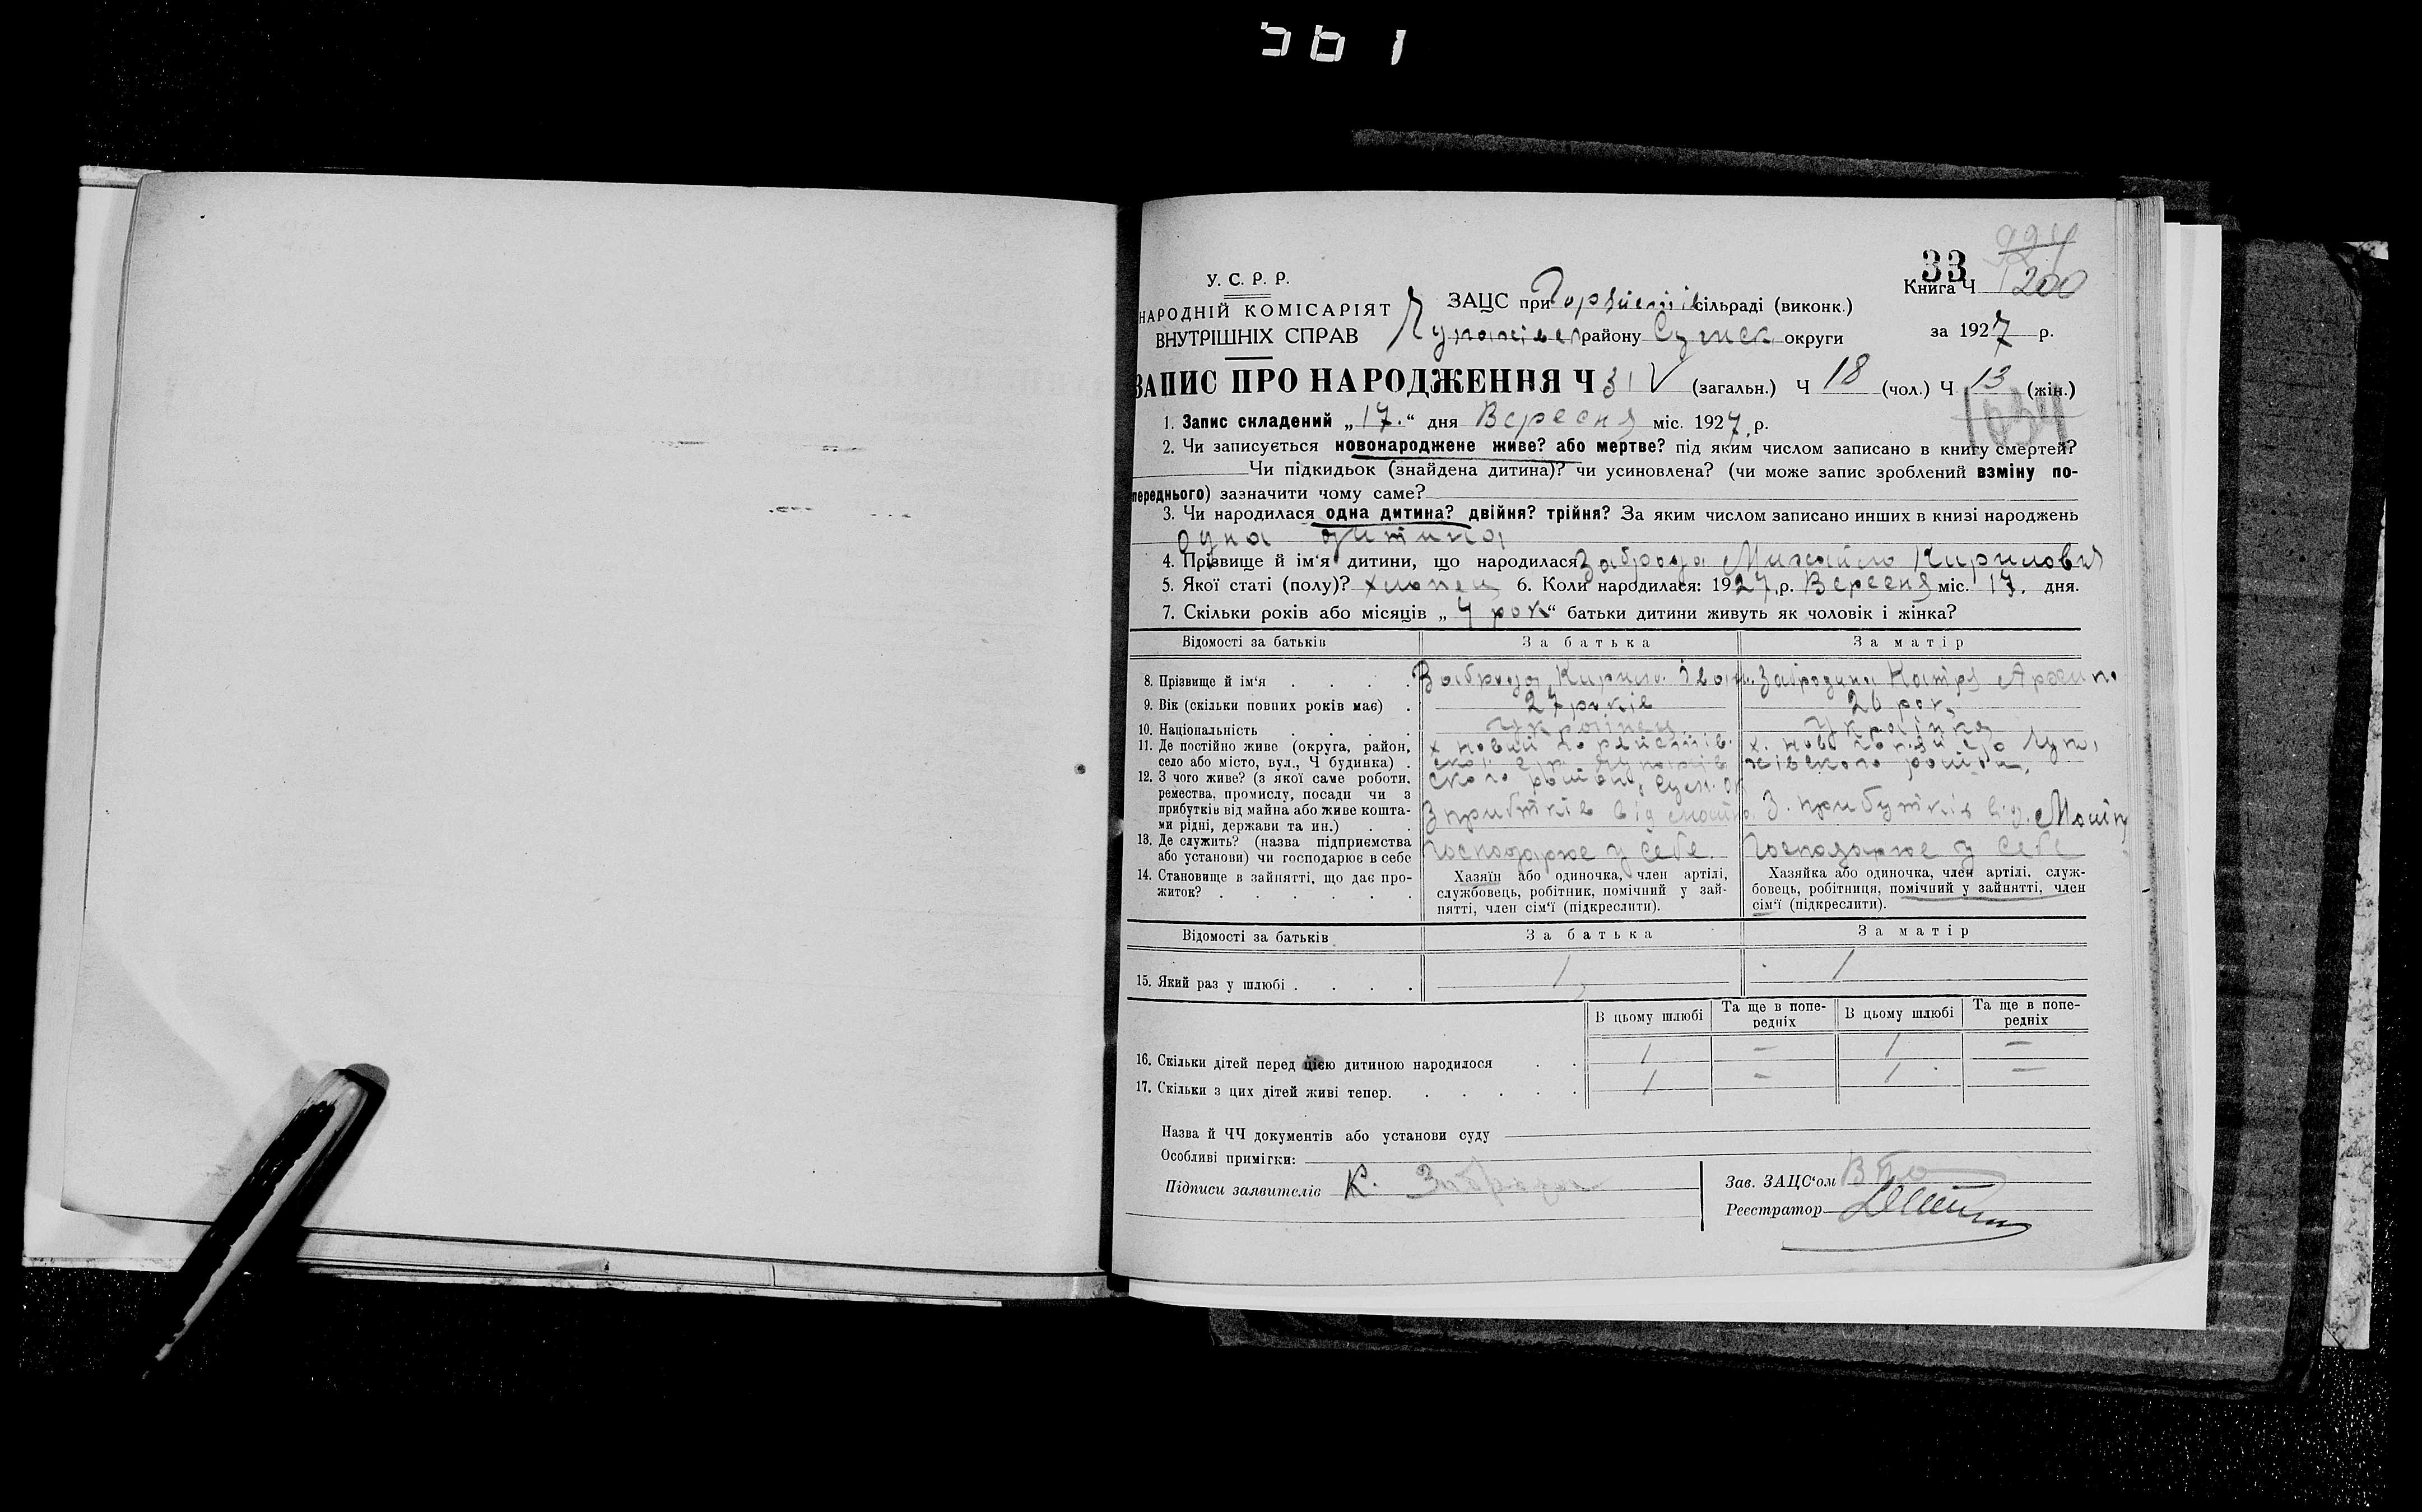 У. С. Р. Р.
НАРОДНІЙ КОМІСАРІЯТ
ВНУТРІШНІХ СПРАВ
ЗАЦС при сільраді (виконк.)
району Сумск округи
33
Книга Ч 200
за 1927 р.
ЗАПИС ПРО НАРОДЖЕННЯ Ч 31 V (загальн.) Ч 18 (чол.) Ч 13 (жін.)
1. Запис складений „17.“ дня Вересня міс. 1927 р.
1034
2. Чи записується новонароджене живе? або мертве? під яким числом записано в книгу смертей?
Чи підкидьок (знайдена дитина)? чи усиновлена? (чи може запис зроблений взміну по-
переднього) зазначити чому саме?
3. Чи народилася одна дитина? двійня? трійня? За яким числом записано инших в книзі народжень
одна дитина
4. Прізвище й ім‘я дитини, що народилася Заброда Михайло Кирилович
5. Якої статі (полу)? хлопец 6. Коли народилася: 1927 р. Вересня міс. 17. дня.
7. Скільки років або місяців „4 рок“ батьки дитини живуть як чоловік і жінка?
Відомості за батьків За батька За матір
8. Прізвище й ім‘я Заброда Кирило Іван. Катря
9. Вік (скільки повних років має) 27 років 26 рок.
10. Національність Українец Українка
11. Де постійно живе (округа, район,
село або місто, вул., Ч будинка)
12. З чого живе? (з якої саме роботи,
ремества, промислу, посади чи з
прибутків від майна або живе кошта-
ми рідні, держави та ин.) З прибтків від майна З. прибутків від. Майна
13. Де служить? (назва підприємства
або установи) чи господарює в себе Господарює у себе. Господарює у себе
14. Становище в зайнятті, що дає про-
житок?
Хазяїн або одиночка, член артілі,
службовець, робітник, помічний у зай-
нятті, член сім‘ї (підкреслити).
Хазяйка або одиночка, член артілі, служ-
бовець, робітниця, помічний у зайнятті, член
сім‘ї (підкреслити).
Відомості за батьків За батька За матір
15. Який раз у шлюбі 1 1
В цьому шлюбі Та ще в попе-редніх В цьому шлюбі Та ще в попе-редніх
16. Скільки дітей перед цією дитиною народилося 1 — 1 —
17. Скільки з цих дітей живі тепер. 1 — 1 —
Назва й ЧЧ документів або установи суду
Особливі примітки:
Підписи заявителів К. Заброда
Зав. ЗАЦС‘ом
Реєстратор